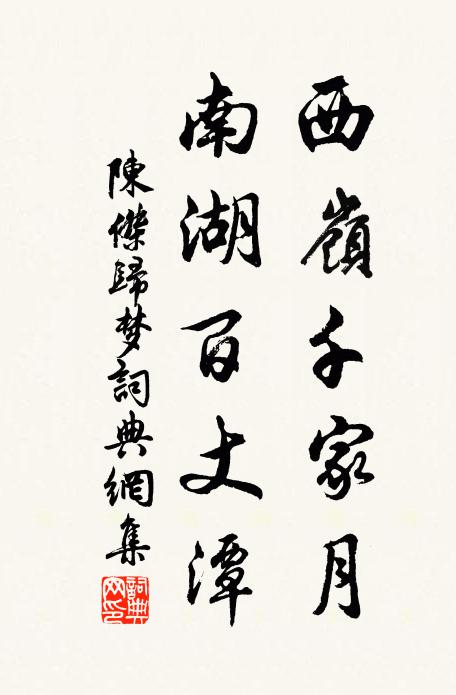 西嶺千家月
南湖百丈潭
陳傑歸梦詞典網集
詞典網印